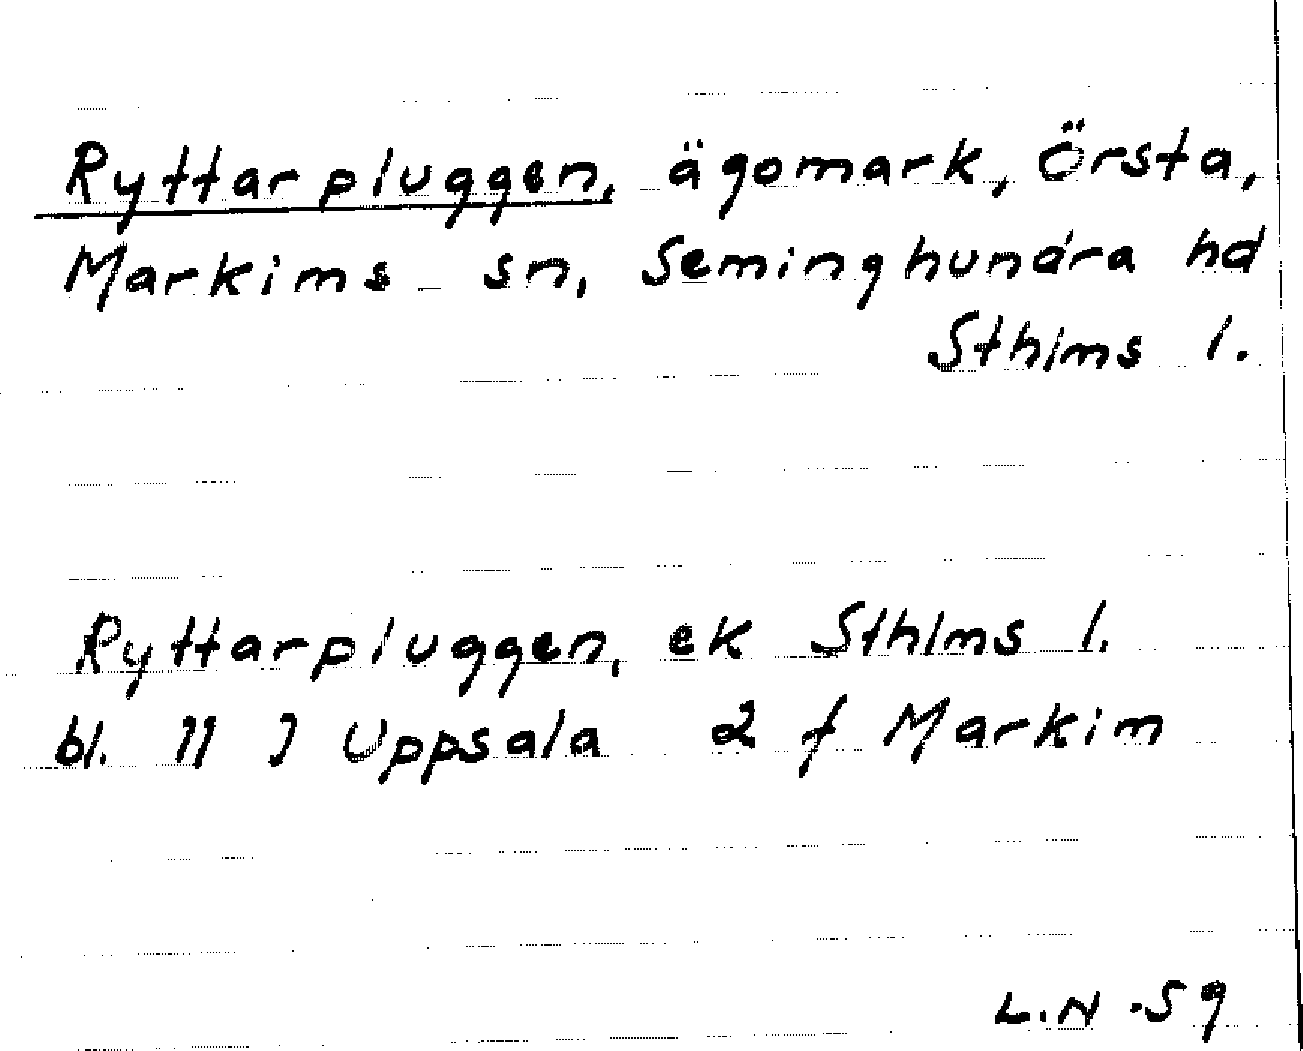 Ryttarpluggen, ägomark, Örsta,
Markims sn, Seminghundra hd
Sthlms l.
Ryttarpluggen, ek Sthlms l.
bl. 11 J Uppsala 2 f Markim
L.N -59